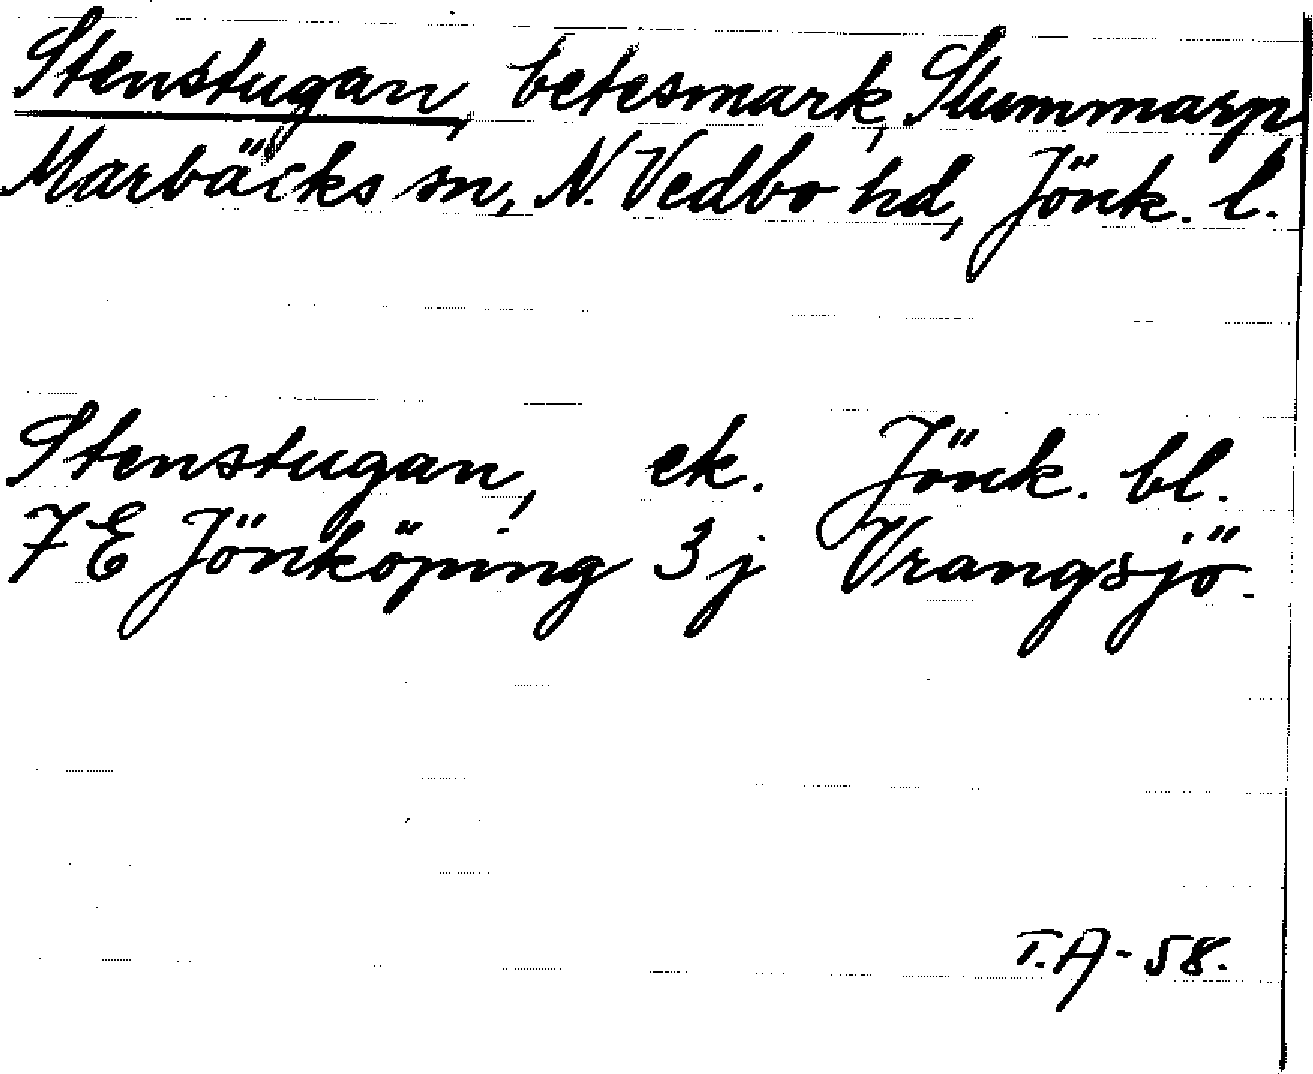 Stenstugan, betesmark, Slummarp
Marbäcks sn, N. Vedbo hd, Jönk. l.
Stenstugan, ek. Jönk. bl.
7E Jönköping 3j Vrangsjö.
T.A - 58.